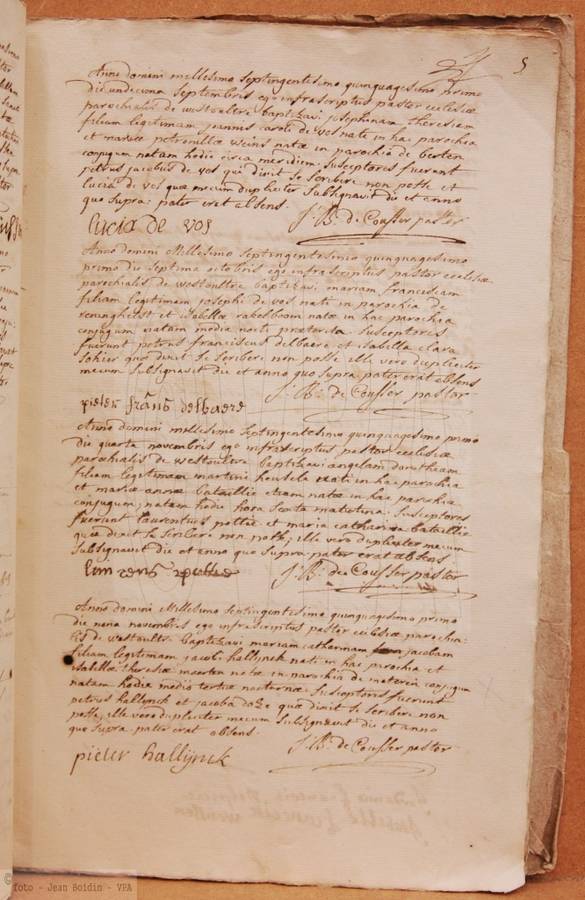 5
Anno domini millesimo septingentesimo quinquagesimo primo
die undecima septembris ego infrascriptus pastor ecclesiæ
parochialis de westoultre baptizavi josephinam theresiam
filiam legitimam joannis caroli de vos nati in hac parochia
et mariæ petronillæ weins natæ in parochia de berten
conjugum natam hodie circa meridiem. susceptores fuerunt
petrus jacobus de vos qui dixit se scribere non posse et
lucia de vos quæ mecum dupliciter subsignavit die et anno
quo supra: pater erat absens.
J. B. de Cousser pastor
lucia de vos
Anno domini Millesimo septingentesimo quinquagesimo
primo die septima octobris ego infrascriptus pastor ecclesiæ
parochialis de westoultre baptizavi mariam franciscam
filiam legitimam josephi de vos nati in parochia de
reninghelst et isabellæ rabelboom natæ in hac parochia
conjugum natam media nocte præterita. susceptores
fuerunt petrus franciscus delbaere et isabella clara
sohier quæ dixit se scribere non posse ille vero dupliciter
mecum subsignavit die et anno quo supra pater erat absens
J. B. de Cousser pastor
pieter frans delbaere
Anno domini millesimo septingentesimo quinquagesimo primo
die quarta novembris ego infrascriptus pastor ecclesiæ
parochialis de westoultre baptizavi angelam dorotheam
filiam legitimam martini heusele nati in hac parochia
et mariæ annæ bataillie etiam natæ in hac parochia
conjugum, natam hodie hora sexta matutina. susceptores
fuerunt laurentius pottie et maria catharina bataillie
quæ dixit se scribere non posse, ille vero dupliciter mecum
subsignavit die et anno quo supra pater erat absens
J. B. de Cousser pastor
lourens pottie
Anno domini Millesimo septingentesimo quinquagesimo primo
die nona novembris ego infrascriptus pastor ecclesiæ parochia-
lis de westoultre baptizavi mariam catharinam jacobam
filiam legitimam jacobi hallynck nati in hac parochia et
isabellæ theresiæ meerten natæ in parochia de materen conjugum
natam hodie medio tertiæ nocturnæ. susceptores fuerunt
petrus hallynck et jacoba quæ dixit se scribere non
posse, ille vero dupliciter mecum subsignavit die et anno
quo supra pater erat absens.
J. B. de Cousser pastor
pieter hallynck
© foto - Jean Boidin - VPA